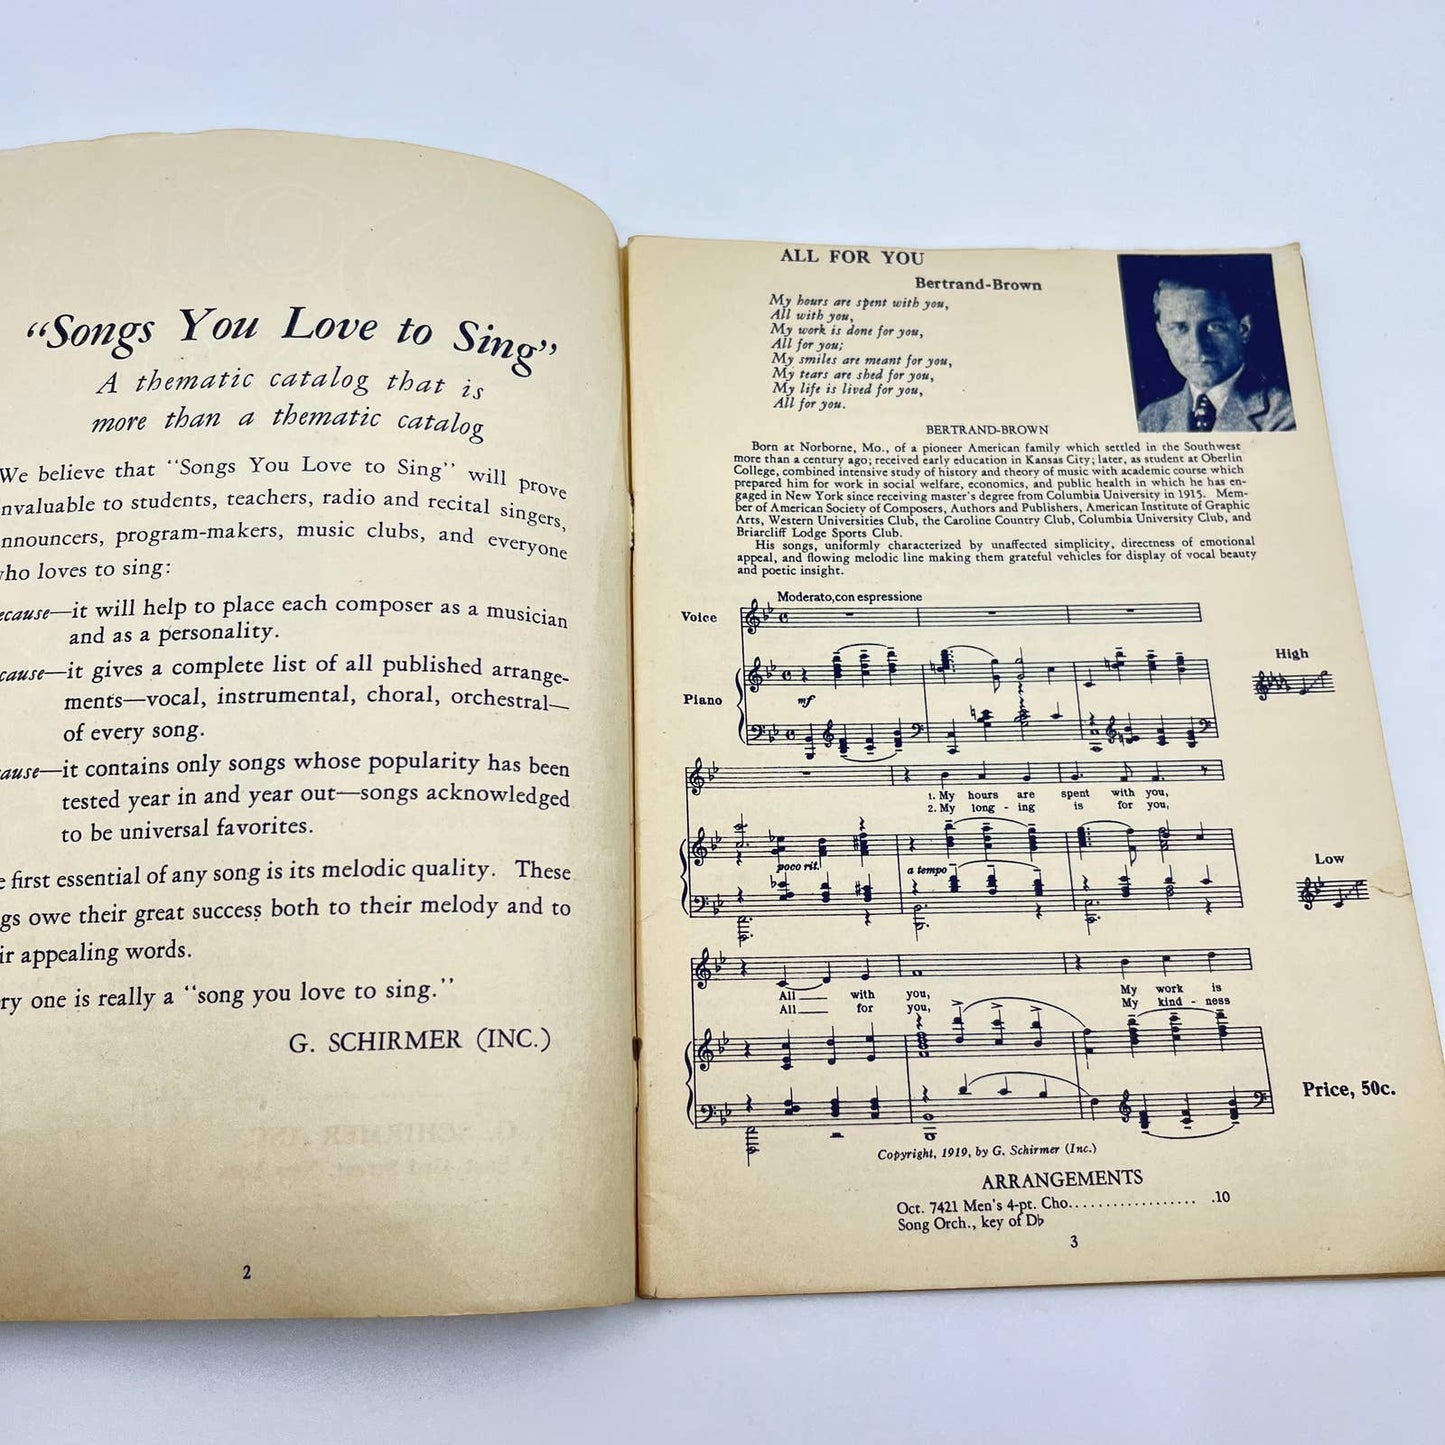 "Songs You Love to Sing"
A thematic catalog that is
more than a thematic catalog
We believe that "Songs You Love to Sing" will prove
nvaluable to students, teachers, radio and recital singers,
nnouncers, program-makers, music clubs, and everyone
who loves to sing:
ecause—it will help to place each composer as a musician
and as a personality.
cause—it gives a complete list of all published arrange-
ments—vocal, instrumental, choral, orchestral—
of every song.
ause—it contains only songs whose popularity has been
tested year in and year out—songs acknowledged
to be universal favorites.
e first essential of any song is its melodic quality. These
gs owe their great success both to their melody and to
ir appealing words.
ry one is really a "song you love to sing."
G. SCHIRMER (INC.)
2
ALL FOR YOU
Bertrand-Brown
My hours are spent with you,
All with you,
My work is done for you,
All for you;
My smiles are meant for you,
My tears are shed for you,
My life is lived for you,
All for you.
BERTRAND-BROWN
Born at Norborne, Mo., of a pioneer American family which settled in the Southwest
more than a century ago; received early education in Kansas City; later, as student at Oberlin
College, combined intensive study of history and theory of music with academic course which
prepared him for work in social welfare, economics, and public health in which he has en-
gaged in New York since receiving master's degree from Columbia University in 1915. Mem-
ber of American Society of Composers, Authors and Publishers, American Institute of Graphic
Arts, Western Universities Club, the Caroline Country Club, Columbia University Club, and
Briarcliff Lodge Sports Club.
His songs, uniformly characterized by unaffected simplicity, directness of emotional
appeal, and flowing melodic line making them grateful vehicles for display of vocal beauty
and poetic insight.
Moderato, con espressione
Voice
High
Piano
mf
1. My hours are spent with you,
2. My long - ing is for you,
poco rit.
a tempo
Low
All with you, My work is
All for you, My kind - ness
Price, 50c.
Copyright, 1919, by G. Schirmer (Inc.)
ARRANGEMENTS
Oct. 7421 Men's 4-pt. Cho.................. .10
Song Orch., key of D♭
3